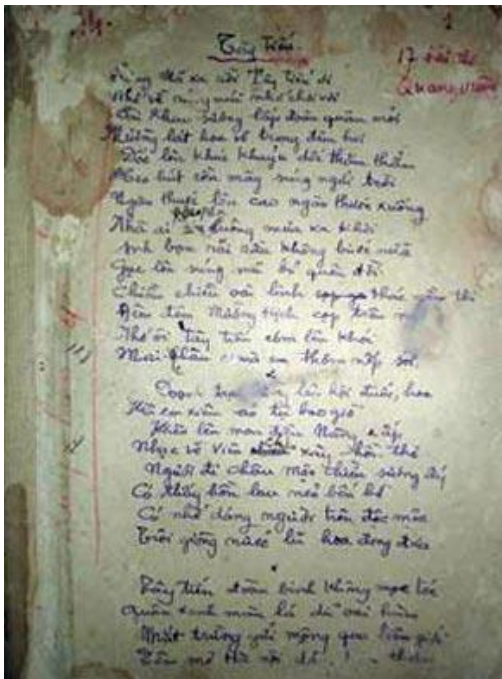 Tây Tiến
17 bài thơ
Quang Dũng
Sông Mã xa rồi Tây tiến ơi
Nhớ về rừng núi nhớ chơi vơi
Sài Khao sương lấp đoàn quân mỏi
Mường lát hoa về trong đêm hơi
Dốc lên khúc khuỷu dốc thăm thẳm
Heo hút cồn mây súng ngửi trời
Ngàn thước lên cao ngàn thước xuống
Nhà ai Pha luông mưa xa khơi
Anh bạn dãi dầu không bước nữa
Gục lên súng mũ bỏ quên đời
Chiều chiều oai linh thác gầm thé
Đêm đêm Mường hịch cọp trêu
Nhớ ôi Tây tiến cơm lên khói
Mai châu mùa em thơm nếp xôi
Doanh trại lên hội đuốc, hoa
Kìa em xiêm áo tự bao giờ
Khèn lên man điệu Nàng e ấp
Nhạc về Viên xây hồn thơ
Người đi Châu Mộc chiều sương ấy
Có thấy hồn lau nẻo bến bờ
Có nhớ dáng người trên độc mộc
Trôi giòng nước lũ hoa đong đưa
Tây tiến đoàn binh không mọc tóc
Quân xanh màu lá dữ oai hùm
Mắt trừng gửi mộng qua biên giới
Đêm mơ Hà nội thơm